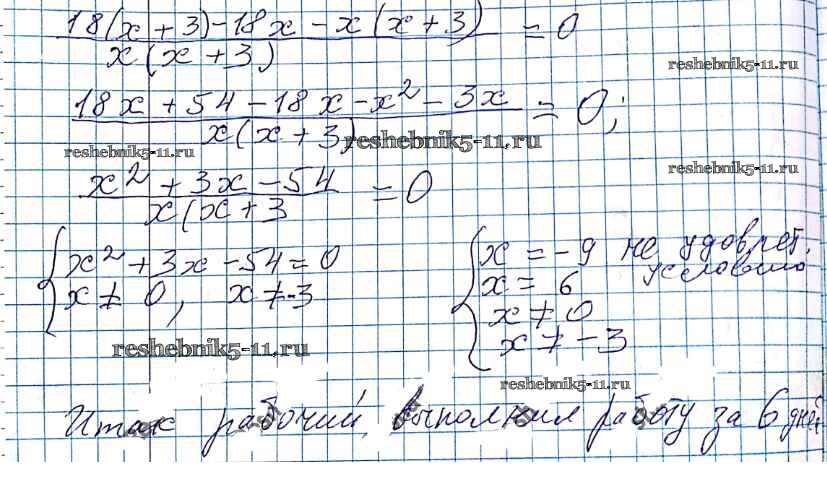 18(x + 3) - 18x - x(x + 3) / x(x + 3) = 0
reshebnik5-11.ru
18x + 54 - 18x - x² - 3x / x(x + 3) = 0;
reshebnik5-11.ru
reshebnik5-11.ru
reshebnik5-11.ru
x² + 3x - 54 / x(x + 3 = 0
{ x² + 3x - 54 = 0
x ≠ 0, x ≠ -3
{ x = -9 не удовлет. условию
x = 6
x ≠ 0
x ≠ -3
reshebnik5-11.ru
reshebnik5-11.ru
Итак рабочий, выполнил работу за 6 дней